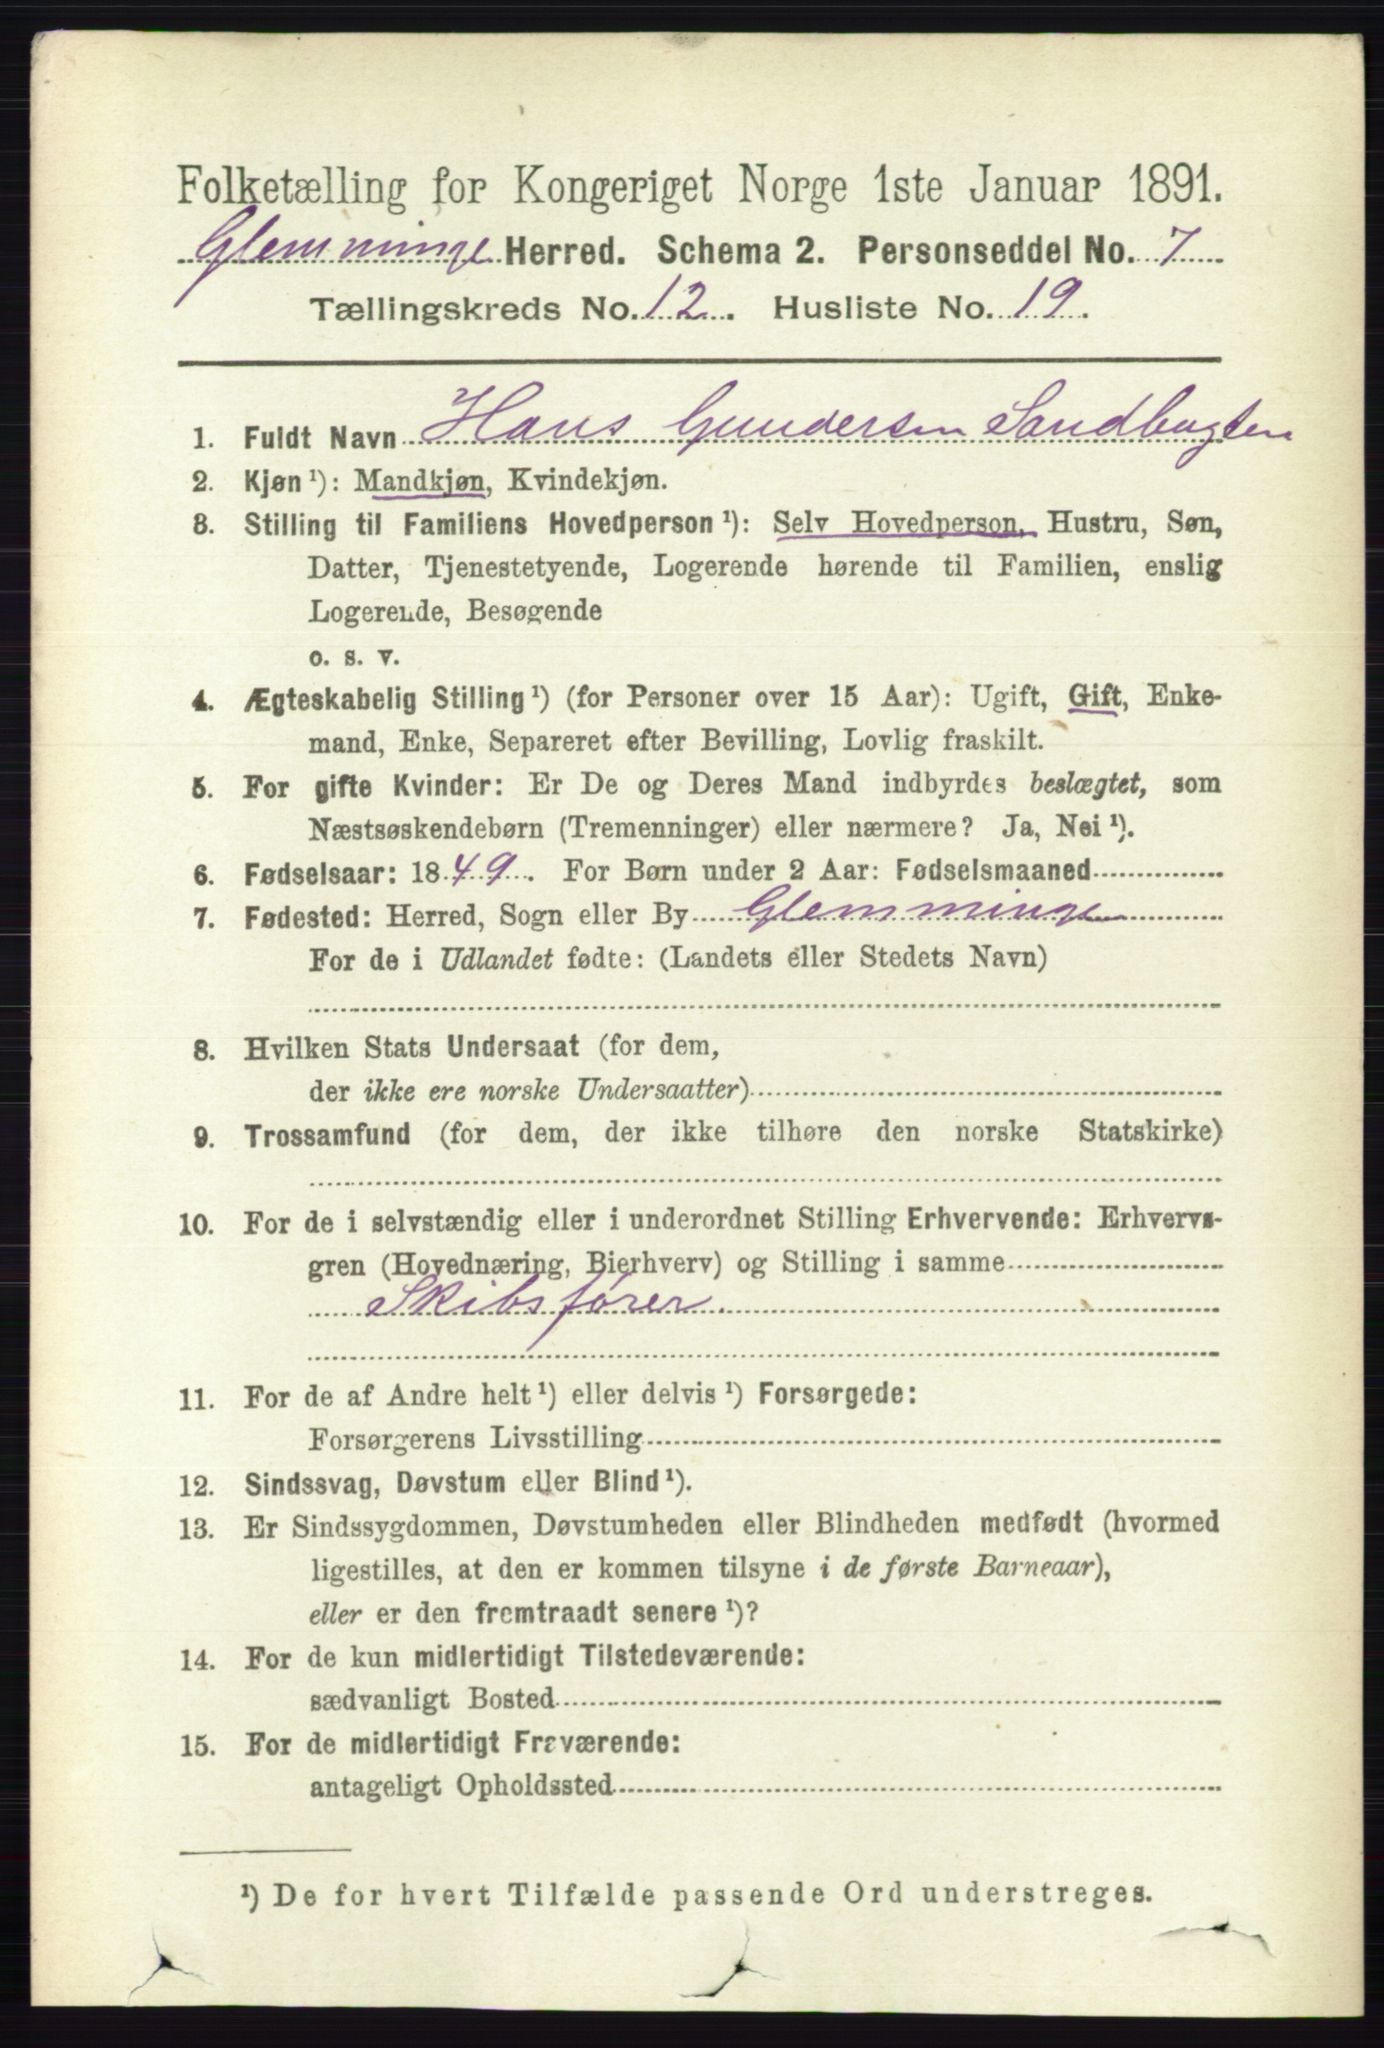 Folketælling for Kongeriget Norge 1ste Januar 1891.
Glemminge Herred. Schema 2. Personseddel No. 7
Tællingskreds No. 12. Husliste No. 19.
1. Fuldt Navn Hans Gundersen Sandbugten
2. Kjøn ¹): Mandkjøn, Kvindekjøn.
3. Stilling til Familiens Hovedperson ¹): Selv Hovedperson, Hustru, Søn,
Datter, Tjenestetyende, Logerende hørende til Familien, enslig
Logerende, Besøgende
o. s. v.
4. Ægteskabelig Stilling ¹) (for Personer over 15 Aar): Ugift, Gift, Enke-
mand, Enke, Separeret efter Bevilling, Lovlig fraskilt.
5. For gifte Kvinder: Er De og Deres Mand indbyrdes beslægtet, som
Næstsøskendebørn (Tremenninger) eller nærmere? Ja, Nei ¹).
6. Fødselsaar: 1849. For Børn under 2 Aar: Fødselsmaaned
7. Fødested: Herred, Sogn eller By Glemminge
For de i Udlandet fødte: (Landets eller Stedets Navn)
8. Hvilken Stats Undersaat (for dem,
der ikke ere norske Undersaatter)
9. Trossamfund (for dem, der ikke tilhøre den norske Statskirke)
10. For de i selvstændig eller i underordnet Stilling Erhvervende: Erhvervs-
gren (Hovednæring, Bierhverv) og Stilling i samme
Skibsfører.
11. For de af Andre helt ¹) eller delvis ¹) Forsørgede:
Forsørgerens Livsstilling
12. Sindssvag, Døvstum eller Blind ¹).
13. Er Sindssygdommen, Døvstumheden eller Blindheden medfødt (hvormed
ligestilles, at den er kommen tilsyne i de første Barneaar),
eller er den fremtraadt senere ¹)?
14. For de kun midlertidigt Tilstedeværende:
sædvanligt Bosted
15. For de midlertidigt Fraværende:
antageligt Opholdssted
¹) De for hvert Tilfælde passende Ord understreges.